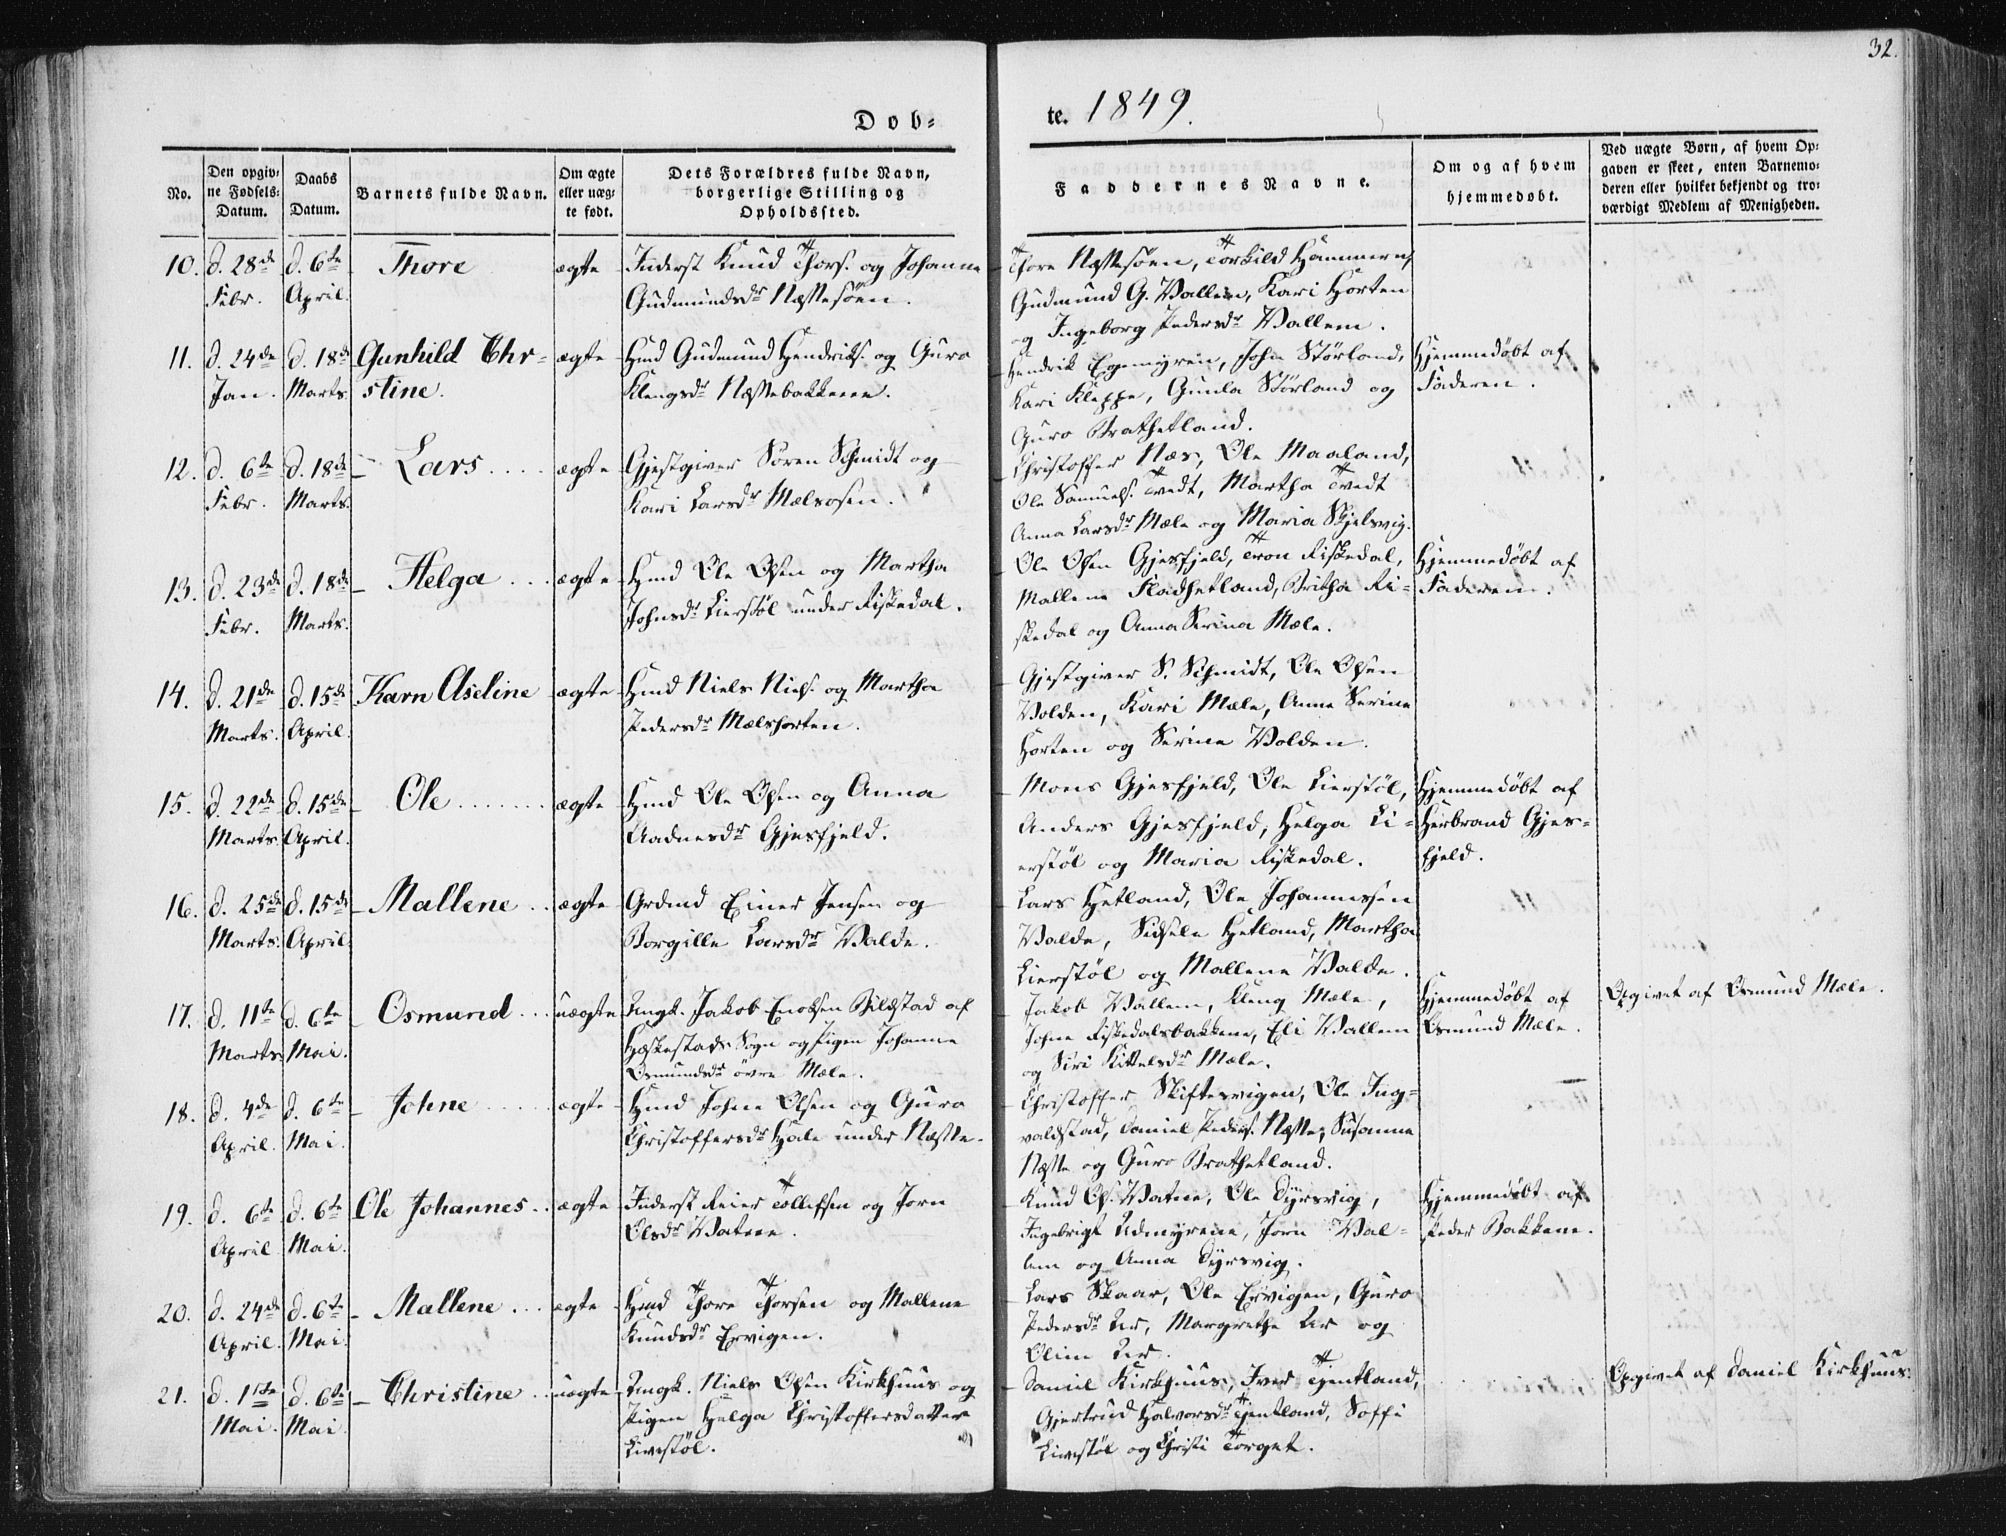 32.
Döb=
te. 1849.
No.
Den opgiv=
ne Fødsels=
Datum.
Daabs
Datum.
Barnets fulde Navn.
Om ægte
eller uæg=
te født.
Dets Forældres fulde Navn,
borgerlige Stilling og
Opholdssted.
Faddernes Navne.
Om og af hvem
hjemmedøbt.
Ved uægte Børn, af hvem Op=
gaven er skeet, enten Barnemo=
deren eller hvilket bekjendt og tro=
værdigt Medlem af Menigheden.
10. d. 28de
Febr.
d. 6te
April.
Thore
ægte
Inderst Knud Thors. og Johanne
Gudmundsdr Næstesöen.
Thore Næstesöen, Torkild Hammeren,
Gudmund G. Vallem, Kari Horten
og Ingeborg Pedersdr Vallem.
11. d. 24de
Jan.
d. 18de
Marts.
Gunhild Chr=
stine.
ægte
Hmd Gudmund Hendriks. og Guro
Klengsdr Næstebakkene.
Hendrik Egemyren, John Störland,
Kari Kleppe, Gunla Störland og
Guro Brathetland.
Hjemmedöbt af
Faderen.
12. d. 6te
Febr.
d. 18de
Marts.
Lars
ægte
Gjestgiver Sören Schmidt og
Kari Larsdr Mælsosen.
Christoffer Næs, Ole Maaland,
Ole Samuels. Tvedt, Martha Tvedt
Anna Larsdr Mæle og Maria Skjelsvig.
13. d. 23de
Febr.
d. 18de
Marts.
Helga
ægte
Hmd Ole Olsen og Martha
Johnsdr Lierstöl under Riskedal.
Ole Olsen Gjesfjeld, Tron Riskedal,
Mallene Fladhetland, Britha Ri=
skedal og Anna Serina Mæle.
Hjemmedöbt af
Faderen.
14. d. 21de
Marts.
d. 15de
April.
Karn Aseline
ægte
Hmd Niels Niels. og Martha
Pedersdr Mælshorten.
Gjestgiver S. Schmidt, Ole Olsen
Volden, Kari Mæle, Anne Serine
Horten og Serine Volden.
15. d. 22de
Marts.
d. 15de
April.
Ole
ægte
Hmd Ole Olsen og Anna
Aadnesdr Gjesfjeld.
Mons Gjesfjeld, Ole Lierstöl,
Anders Gjesfjeld, Helga Li=
erstöl og Maria Riskedal.
Hjemmedöbt af
Herbrand Gjes=
fjeld.
16. d. 25de
Marts.
d. 15de
April.
Mallene
ægte
Grdmd Einer Jensen og
Borgille Larsdr Valde.
Lars Hetland, Ole Johannessen
Valde, Sidsele Hetland, Martha
Lierstöl og Mallene Valde.
17. d. 11te
Marts
d. 6te
Mai.
Osmund
uægte
Ungk. Jakob Enoksen Bilstad af
Heskestads Sogn og Pigen Johanne
Osmundsdr övre Mæle.
Jakob Vallem, Kleng Mæle,
Johne Riskedalsbakkene, Eli Vallem
og Siri Kittelsdr Mæle.
Hjemmedöbt af
Osmund Mæle.
Opgivet af Osmund Mæle.
18. d. 4de
April.
d. 6te
Mai.
Johne
ægte
Hmd Johne Olsen og Guro
Christoffersdr Hale under Næste.
Christoffer Skiftesvigen, Ole Ing=
valdstad, Daniel Peders. Næste, Susanne
Næste og Guro Brathetland.
19. d. 6te
April
d. 6te
Mai.
Ole Johannes
ægte
Inderst Reier Tollefsen og Jorn
Olsdr Vatne.
Knud Ols. Vatne, Ole Dyrsvig,
Ingebrigt Udmyrene, Jorn Val=
lem og Anna Dyrsvig.
Hjemmedöbt af
Peder Bakkene.
20. d. 24de
April.
d. 6te
Mai.
Mallene
ægte
Hmd Thore Thorsen og Mallene
Knudsdr Ervigen.
Lars Skaar, Ole Ervigen, Guro
Pedersdr Ur, Margrethe Ur og
Oline Ur.
21. d. 1ste
Mai.
d. 6te
Mai
Christine
uægte
Ungk. Niels Olsen Kirkhuus og
Pigen Helga Christoffersdatter
Livestöl.
Daniel Kirkhuus, Iver Tjentland,
Gjertrud Halvorsdr Tjentland, Soffi
Livestöl og Christi Torget.
Opgivet af Daniel Kirkhuus.